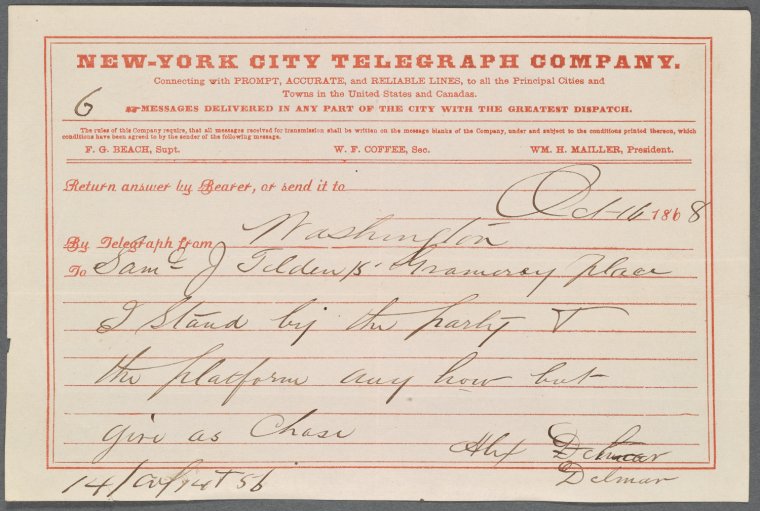 NEW-YORK CITY TELEGRAPH COMPANY.
Connecting with PROMPT, ACCURATE, and RELIABLE LINES, to all the Principal Cities and
Towns in the United States and Canadas.
6
☞MESSAGES DELIVERED IN ANY PART OF THE CITY WITH THE GREATEST DISPATCH.
The rules of this Company require, that all messages received for transmission shall be written on the message blanks of the Company, under and subject to the conditions printed thereon, which
conditions have been agreed to by the sender of the following message.
F. G. BEACH, Supt. W. F. COFFEE, Sec. WM. H. MAILLER, President.
Return answer by Bearer, or send it to
Oct 16 1868
By Telegraph from Washington
To Saml J Tilden 15 Gramercy place
I stand by the party &
the platform any how but
give as Chase
Alex Delmar
Delmar
14/ 56